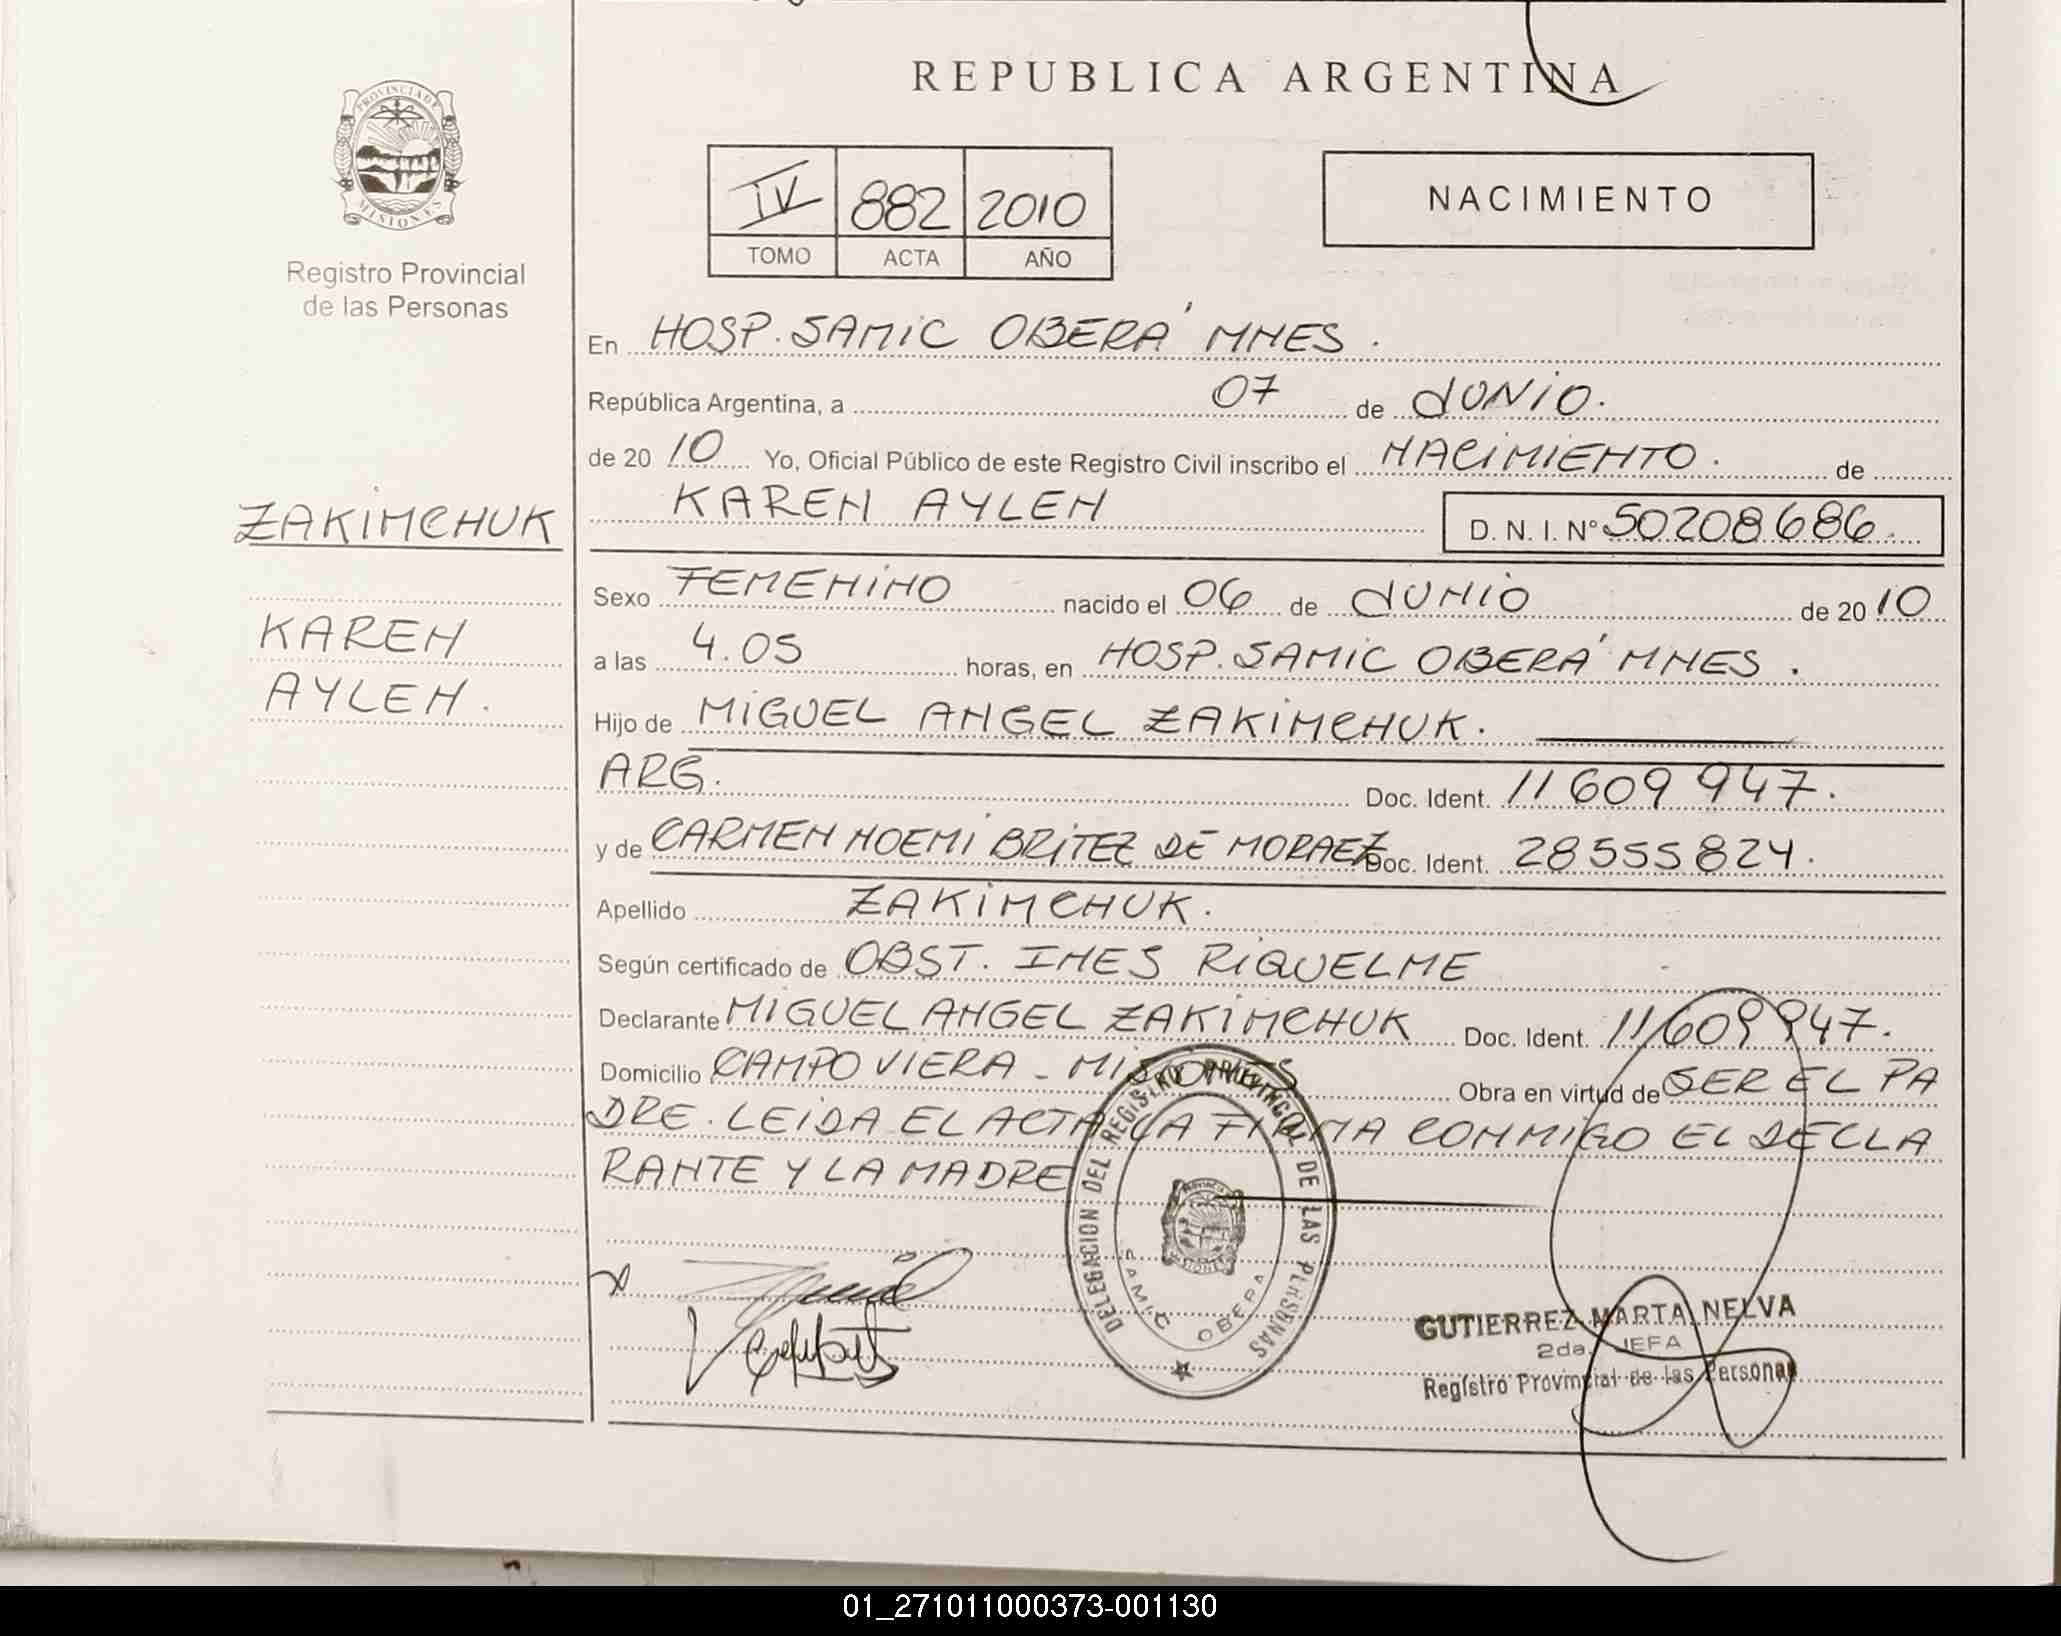 REPUBLICA ARGENTINA
PROVINCIA DE MISIONES
Registro Provincial
de las Personas
IV 882 2010
TOMO ACTA AÑO
NACIMIENTO
En HOSP. SAMIC OBERÁ MNES.
República Argentina, a 07 de JUNIO.
de 20 10 Yo, Oficial Público de este Registro Civil inscribo el NACIMIENTO. de
KAREN AYLEN D. N. I. Nº 50208686.
ZAKIMCHUK
KAREN
AYLEN.
Sexo FEMENINO nacido el 06 de JUNIO de 20 10
a las 4.05 horas, en HOSP. SAMIC OBERÁ MNES.
Hijo de MIGUEL ANGEL ZAKIMCHUK.
ARG. Doc. Ident. 11609947.
y de CARMEN NOEMI BRITEZ DE MORAEZ Doc. Ident. 28555824.
Apellido ZAKIMCHUK.
Según certificado de OBST. INES RIQUELME
Declarante MIGUEL ANGEL ZAKIMCHUK Doc. Ident. 11609947.
Domicilio CAMPO VIERA - MISIONES Obra en virtud de SER EL PA
DRE. LEIDA EL ACTA LA FIRMA CONMIGO EL DECLA
RANTE Y LA MADRE
DELEGACION DEL REGISTRO PROVINCIAL DE LAS PERSONAS
SAMIC OBERA
GUTIERREZ MARTA NELVA
2da. JEFA
Registro Provincial de las Personas
01_271011000373-001130